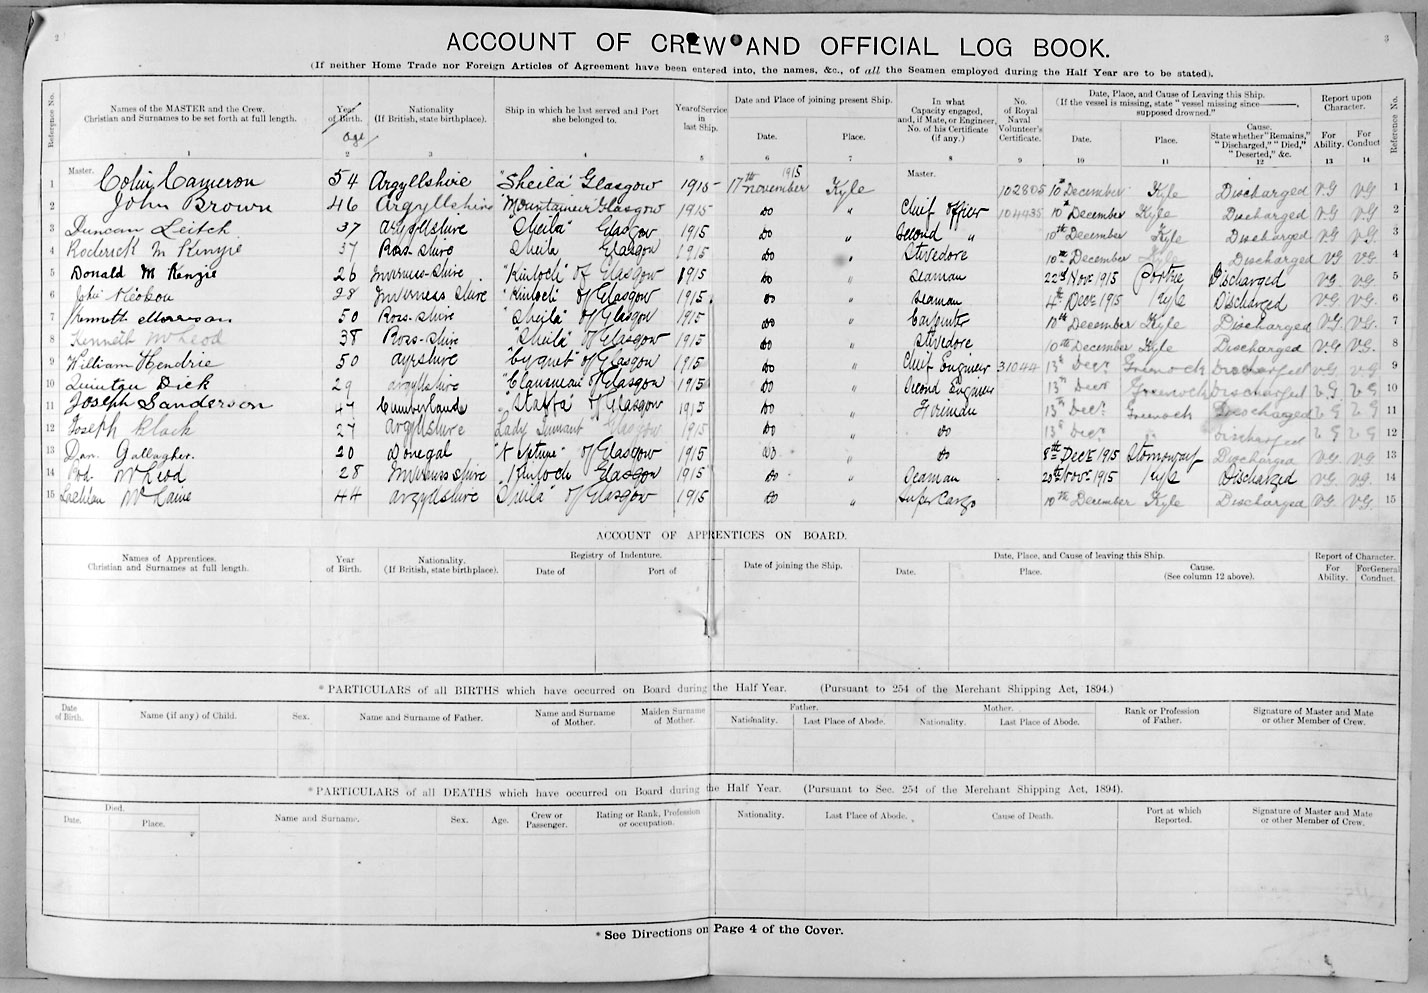 2
3
ACCOUNT OF CREW AND OFFICIAL LOG BOOK.
(If neither Home Trade nor Foreign Articles of Agreement have been entered into, the names, &c., of all the Seamen employed during the Half Year are to be stated).
Reference No. Names of the MASTER and the Crew. Christian and Surnames to be set forth at full length. Year of Birth. Age Nationality (If British, state birthplace). Ship in which he last served and Port she belonged to. Year of Service in last Ship. Date and Place of joining present Ship. Date. Place. In what Capacity engaged, and, if Mate, or Engineer, No. of his Certificate (if any.) No. of Royal Naval Volunteer's Certificate. Date, Place, and Cause of Leaving this Ship. (If the vessel is missing, state "vessel missing since ———, supposed drowned." Date. Place. Cause. State whether "Remains," "Discharged," "Died," "Deserted," &c. Report upon Character. For Ability. For Conduct Reference No.
1 2 3 4 5 6 7 8 9 10 11 12 13 14
Master. 1915 Master.
1 Colin Cameron 54 Argyllshire "Sheila" Glasgow 1915 17th November Kyle 102805 10th December Kyle Discharged V.G V.G 1
2 John Brown 46 Argyllshire "Mountaineer" Glasgow 1915 Do " Chief Officer 104435 10th December Kyle Discharged V.G V.G. 2
3 Duncan Leitch 37 Argyllshire "Sheila" Glasgow 1915 Do " Second " 10th December Kyle Discharged V.G V.G. 3
4 Roderick McKenzie 37 Ross-shire Sheila Glasgow 1915 Do " Stevedore 10th December Kyle Discharged V.G V.G. 4
5 Donald McKenzie 26 Inverness-shire "Kinloch" of Glasgow 1915 Do " Seaman 22nd Nov. 1915 Portree Discharged V.G V.G. 5
6 John Nicolson 28 Inverness shire "Kinloch" of Glasgow 1915 Do " Seaman 4th Dec. 1915 Kyle Discharged V.G. V.G. 6
7 Kenneth Morrison 50 Ross-shire "Sheila" of Glasgow 1915 Do " Carpenter 10th December Kyle Discharged V.G. V.G. 7
8 Kenneth McLeod 38 Ross-shire "Sheila" of Glasgow 1915 Do " Stevedore 10th December Kyle Discharged V.G V.G. 8
9 William Hendrie 50 Ayrshire "Cygnet" of Glasgow 1915 Do " Chief Engineer 31044 13th Decr Greenock Discharged V.G V.G 9
10 Quintin Dick 29 Argyllshire "Clansman" of Glasgow 1915 Do " Second Engineer 13th Decr Greenock Discharged V.G V.G 10
11 Joseph Sanderson 47 Cumberland "Staffa" of Glasgow 1915 Do " Fireman 13th Decr Greenock Discharged V.G V.G 11
12 Joseph Black 27 Argyllshire Lady Tennant " Glasgow 1915 Do " Do 13th Decr " Discharged V.G V.G 12
13 Dan. Gallagher. 20 Donegal "Neptune" of Glasgow 1915 Do " 8th Dec. 1915 Stornoway Discharged V.G V.G 13
14 Rod. McLeod 28 Inverness shire Kinloch Glasgow 1915 Do " Seaman 20th Nov. 1915 Kyle Discharged V.G. V.G. 14
15 Lachlan McLaine 44 Argyllshire "Sheila" of Glasgow 1915 Do " Super Cargo 10th December Kyle Discharged V.G. V.G. 15
ACCOUNT OF APPRENTICES ON BOARD.
Names of Apprentices. Christian and Surnames at full length. Year of Birth. Nationality. (If British, state birthplace). Registry of Indenture. Date of Port of Date of joining the Ship. Date, Place, and Cause of leaving this Ship. Date. Place. Cause. (See column 12 above). Report of Character. For Ability. For General Conduct.
*PARTICULARS of all BIRTHS which have occurred on Board during the Half Year. (Pursuant to 254 of the Merchant Shipping Act, 1894.)
Date of Birth. Name (if any) of Child. Sex. Name and Surname of Father. Name and Surname of Mother. Maiden Surname of Mother. Father. Nationality. Last Place of Abode. Mother. Nationality. Last Place of Abode. Rank or Profession of Father. Signature of Master and Mate or other Member of Crew.
*PARTICULARS of all DEATHS which have occurred on Board during the Half Year. (Pursuant to Sec. 254 of the Merchant Shipping Act, 1894).
Died. Date. Place. Name and Surname. Sex. Age. Crew or Passenger. Rating or Rank, Profession or occupation. Nationality. Last Place of Abode. Cause of Death. Port at which Reported. Signature of Master and Mate or other Member of Crew.
*See Directions on Page 4 of the Cover.